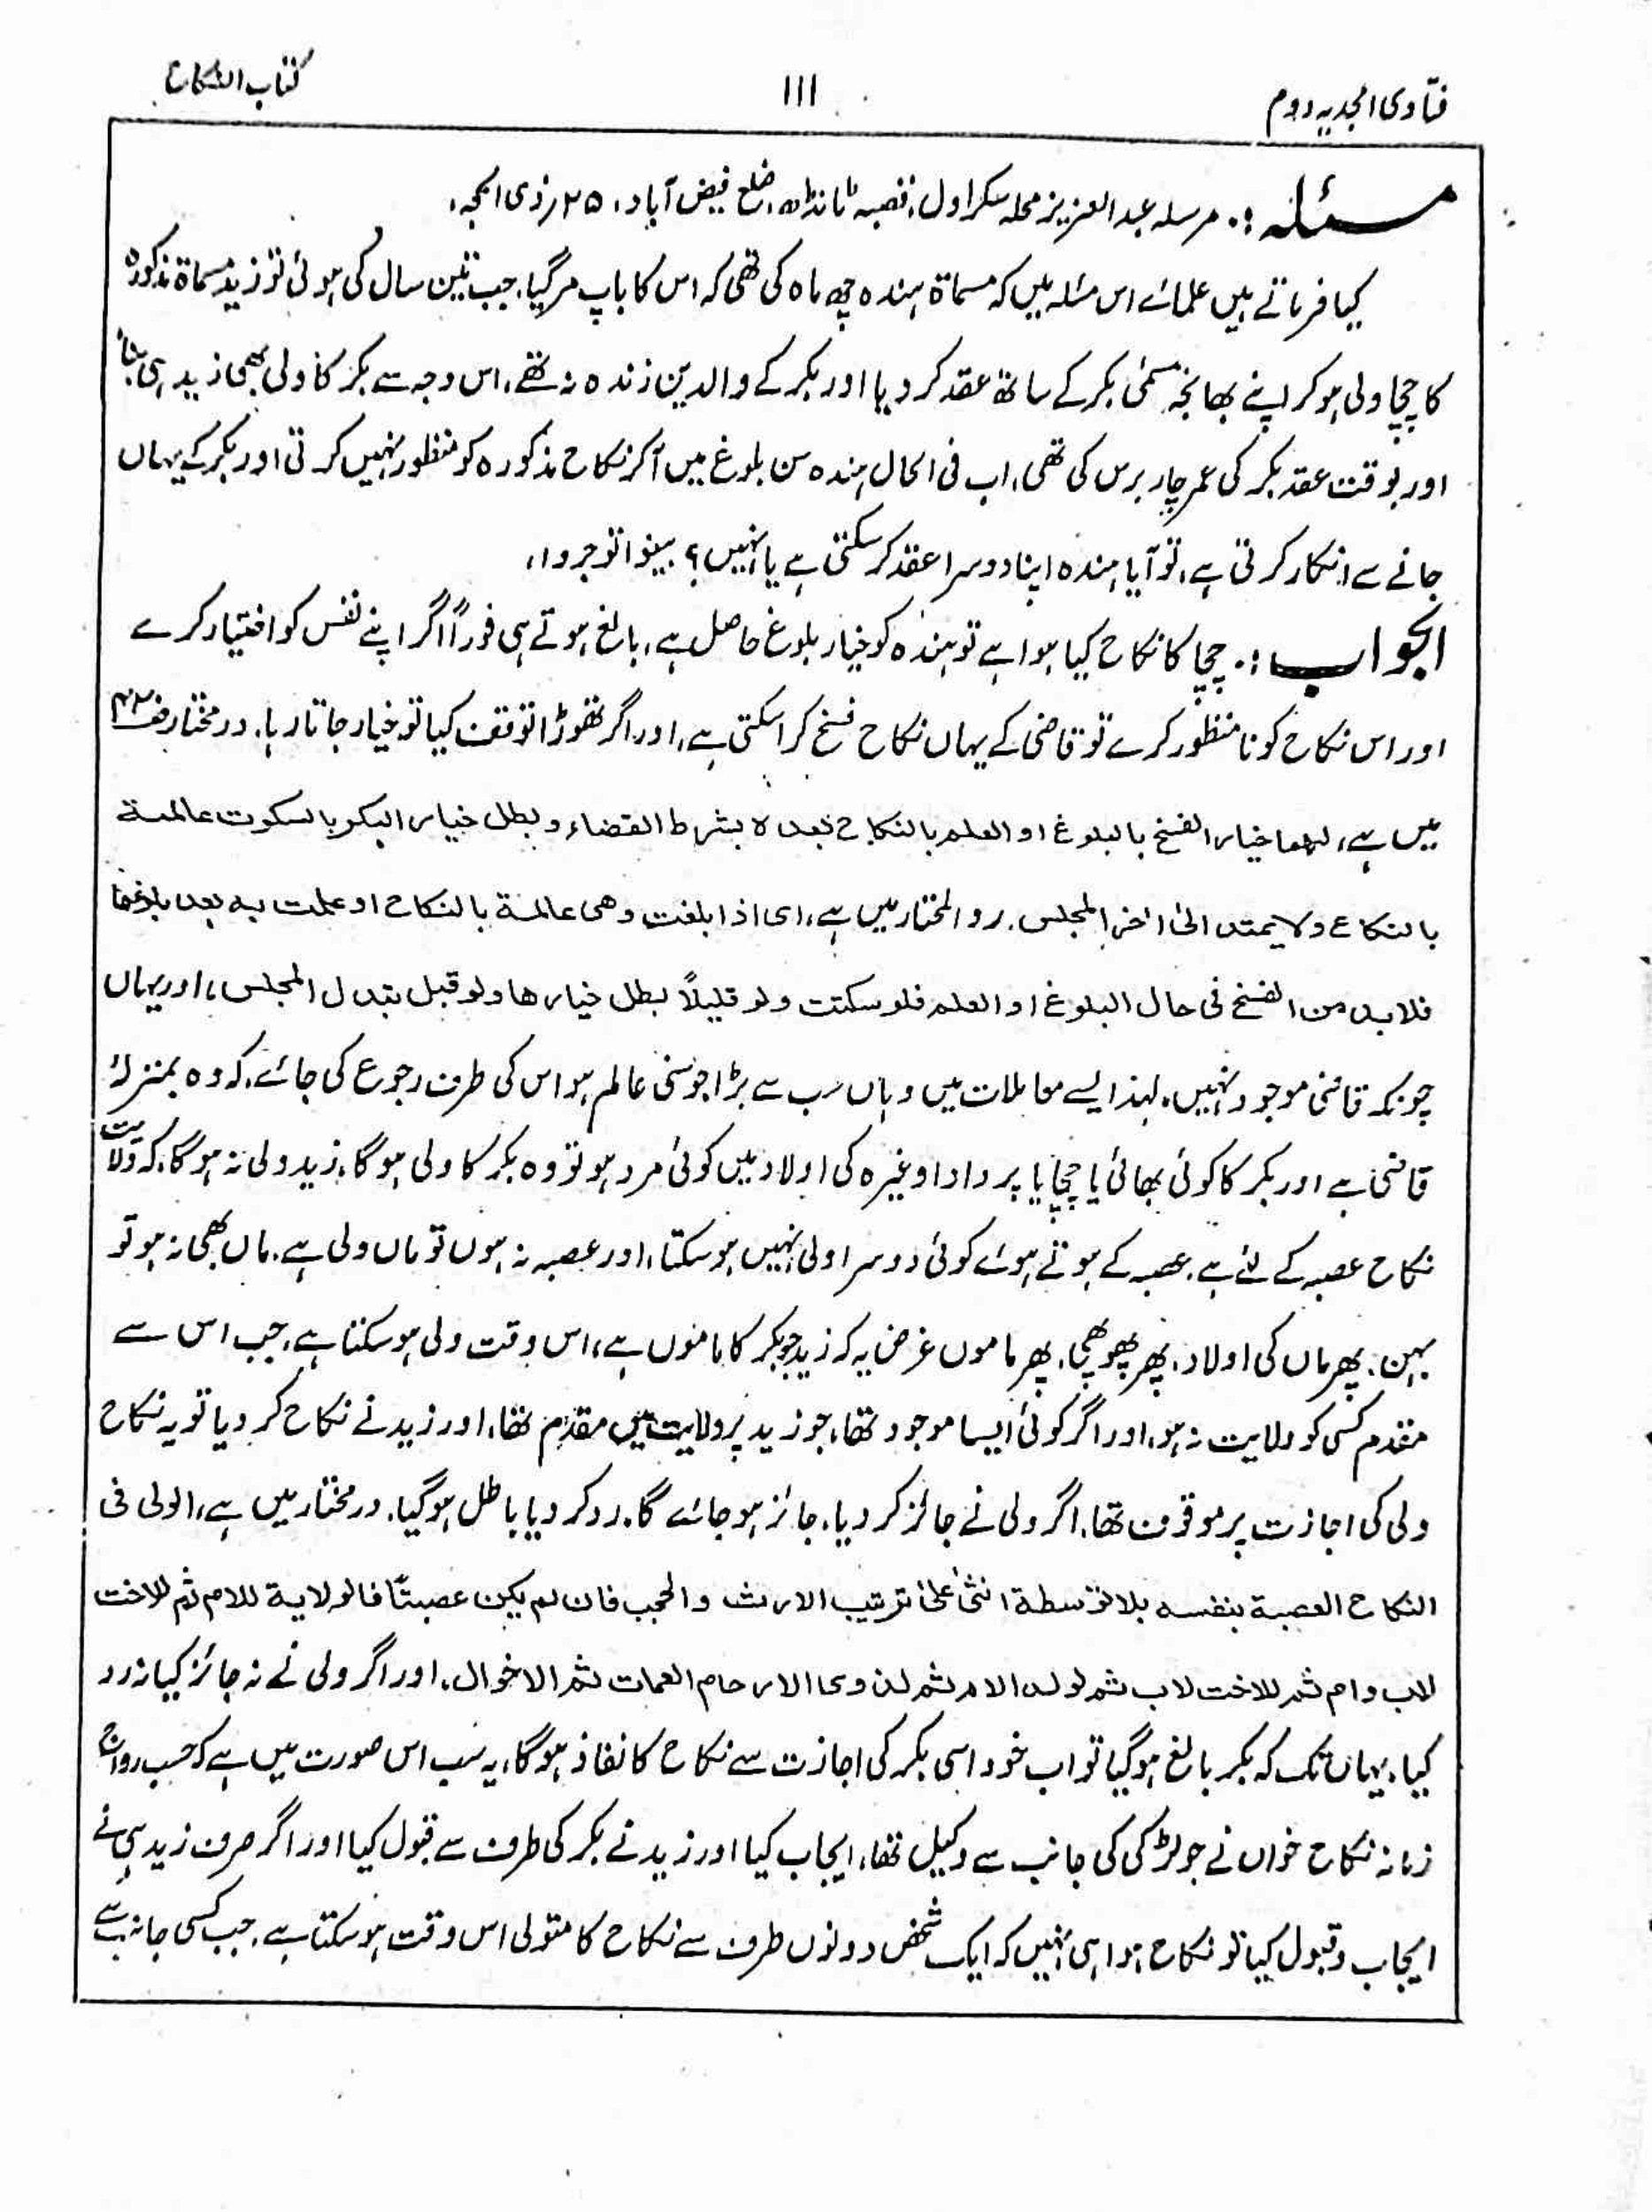 فتاوی امجدیہ دوم
۱۱۱
کتاب النکاح
مسئلہ :۔ مرسلہ عبد العزیز محلہ سکراول، قصبہ ٹانڈہ، ضلع فیض آباد، ۲۵؍ ذی الحجہ،
کیا فرماتے ہیں علمائے اس مسئلہ میں کہ مسماۃ ہندہ چھ ماہ کی تھی کہ اس کا باپ مر گیا، جب تین سال کی ہوئی تو زید مسماۃ مذکورہ
کا چچا ولی ہو کر اپنے بھانجہ مسمیٰ بکر کے ساتھ عقد کر دیا اور بکر کے والدین زندہ نہ تھے، اس وجہ سے بکر کا ولی بھی زید ہی تھا
اور بوقت عقد بکر کی عمر چار برس کی تھی، اب فی الحال ہندہ سن بلوغ میں آکر نکاح مذکورہ کو منظور نہیں کرتی اور بکر کے یہاں
جانے سے انکار کرتی ہے، تو آیا ہندہ اپنا دوسرا عقد کر سکتی ہے یا نہیں؟ بینوا توجروا،
الجواب :۔ چچا کا نکاح کیا ہوا ہے تو ہندہ کو خیار بلوغ حاصل ہے، بالغ ہوتے ہی فوراً اگر اپنے نفس کو اختیار کرے
اور اس نکاح کو نا منظور کرے تو قاضی کے یہاں نکاح فسخ کرا سکتی ہے، اور اگر تھوڑا توقف کیا تو خیار جاتا رہا۔ درمختار
میں ہے، لهما خيار الفسخ بالبلوغ او العلم بالنكاح بعدہ بشرط القضاء و بطل خيار البكر بالسكوت عالمة
بالنكاح ولا يمتد الى اخر المجلس۔ رد المحتار میں ہے، ای اذا بلغت وهی عالمة بالنكاح او علمت به بعد بلوغها
فلا بد من الفسخ فی حال البلوغ او العلم فلو سكتت ولو قليلاً بطل خيارها ولو قبل تبدل المجلس، اور یہاں
چونکہ قاضی موجود نہیں، لہذا ایسے معاملات میں وہاں سب سے بڑا جو سنی عالم ہو اس کی طرف رجوع کی جائے، کہ وہ بمنزلۂ
قاضی ہے اور بکر کا کوئی بھائی یا چچا یا پردادا وغیرہ کی اولاد میں کوئی مرد ہو تو وہ بکر کا ولی ہوگا، زید ولی نہ ہوگا، کہ ولایت
نکاح عصبہ کے لئے ہے۔ عصبہ کے ہوتے ہوئے کوئی دوسرا ولی نہیں ہو سکتا، اور عصبہ نہ ہوں تو ماں ولی ہے، ماں بھی نہ ہو تو
بہن، پھر ماں کی اولاد، پھر پھوپھی، پھر ماموں غرض یہ کہ زید جو بکر کا ماموں ہے، اس وقت ولی ہو سکتا ہے، جب اس سے
مقدم کسی کو ولایت نہ ہو، اور اگر کوئی ایسا موجود تھا، جو زید پر ولایت میں مقدم تھا، اور زید نے نکاح کر دیا تو یہ نکاح
ولی کی اجازت پر موقوف تھا، اگر ولی نے جائز کر دیا، جائز ہو جائے گا، رد کر دیا باطل ہو گیا، درمختار میں ہے، الولی فی
النكاح العصبة بنفسه بلا توسطة انثیٰ علیٰ ترتيب الارث والحجب فان لم يكن عصبتاً فالولاية للام ثم للاخت
لاب وام ثم للاخت لاب ثم لولد الام ثم لذوی الارحام العمات ثم الاخوال، اور اگر ولی نے نہ جائز کیا نہ رد
کیا، یہاں تک کہ بکر بالغ ہو گیا تو اب خود اسی بکر کی اجازت سے نکاح کا نفاذ ہوگا، یہ سب اس صورت میں ہے کہ حسب رواج
زمانہ نکاح خواں نے جو لڑکی کی جانب سے وکیل تھا، ایجاب کیا اور زید نے بکر کی طرف سے قبول کیا اور اگر صرف زید ہی نے
ایجاب و قبول کیا تو نکاح ہوا ہی نہیں کہ ایک شخص دونوں طرف سے نکاح کا متولی اس وقت ہو سکتا ہے، جب کسی جانب سے